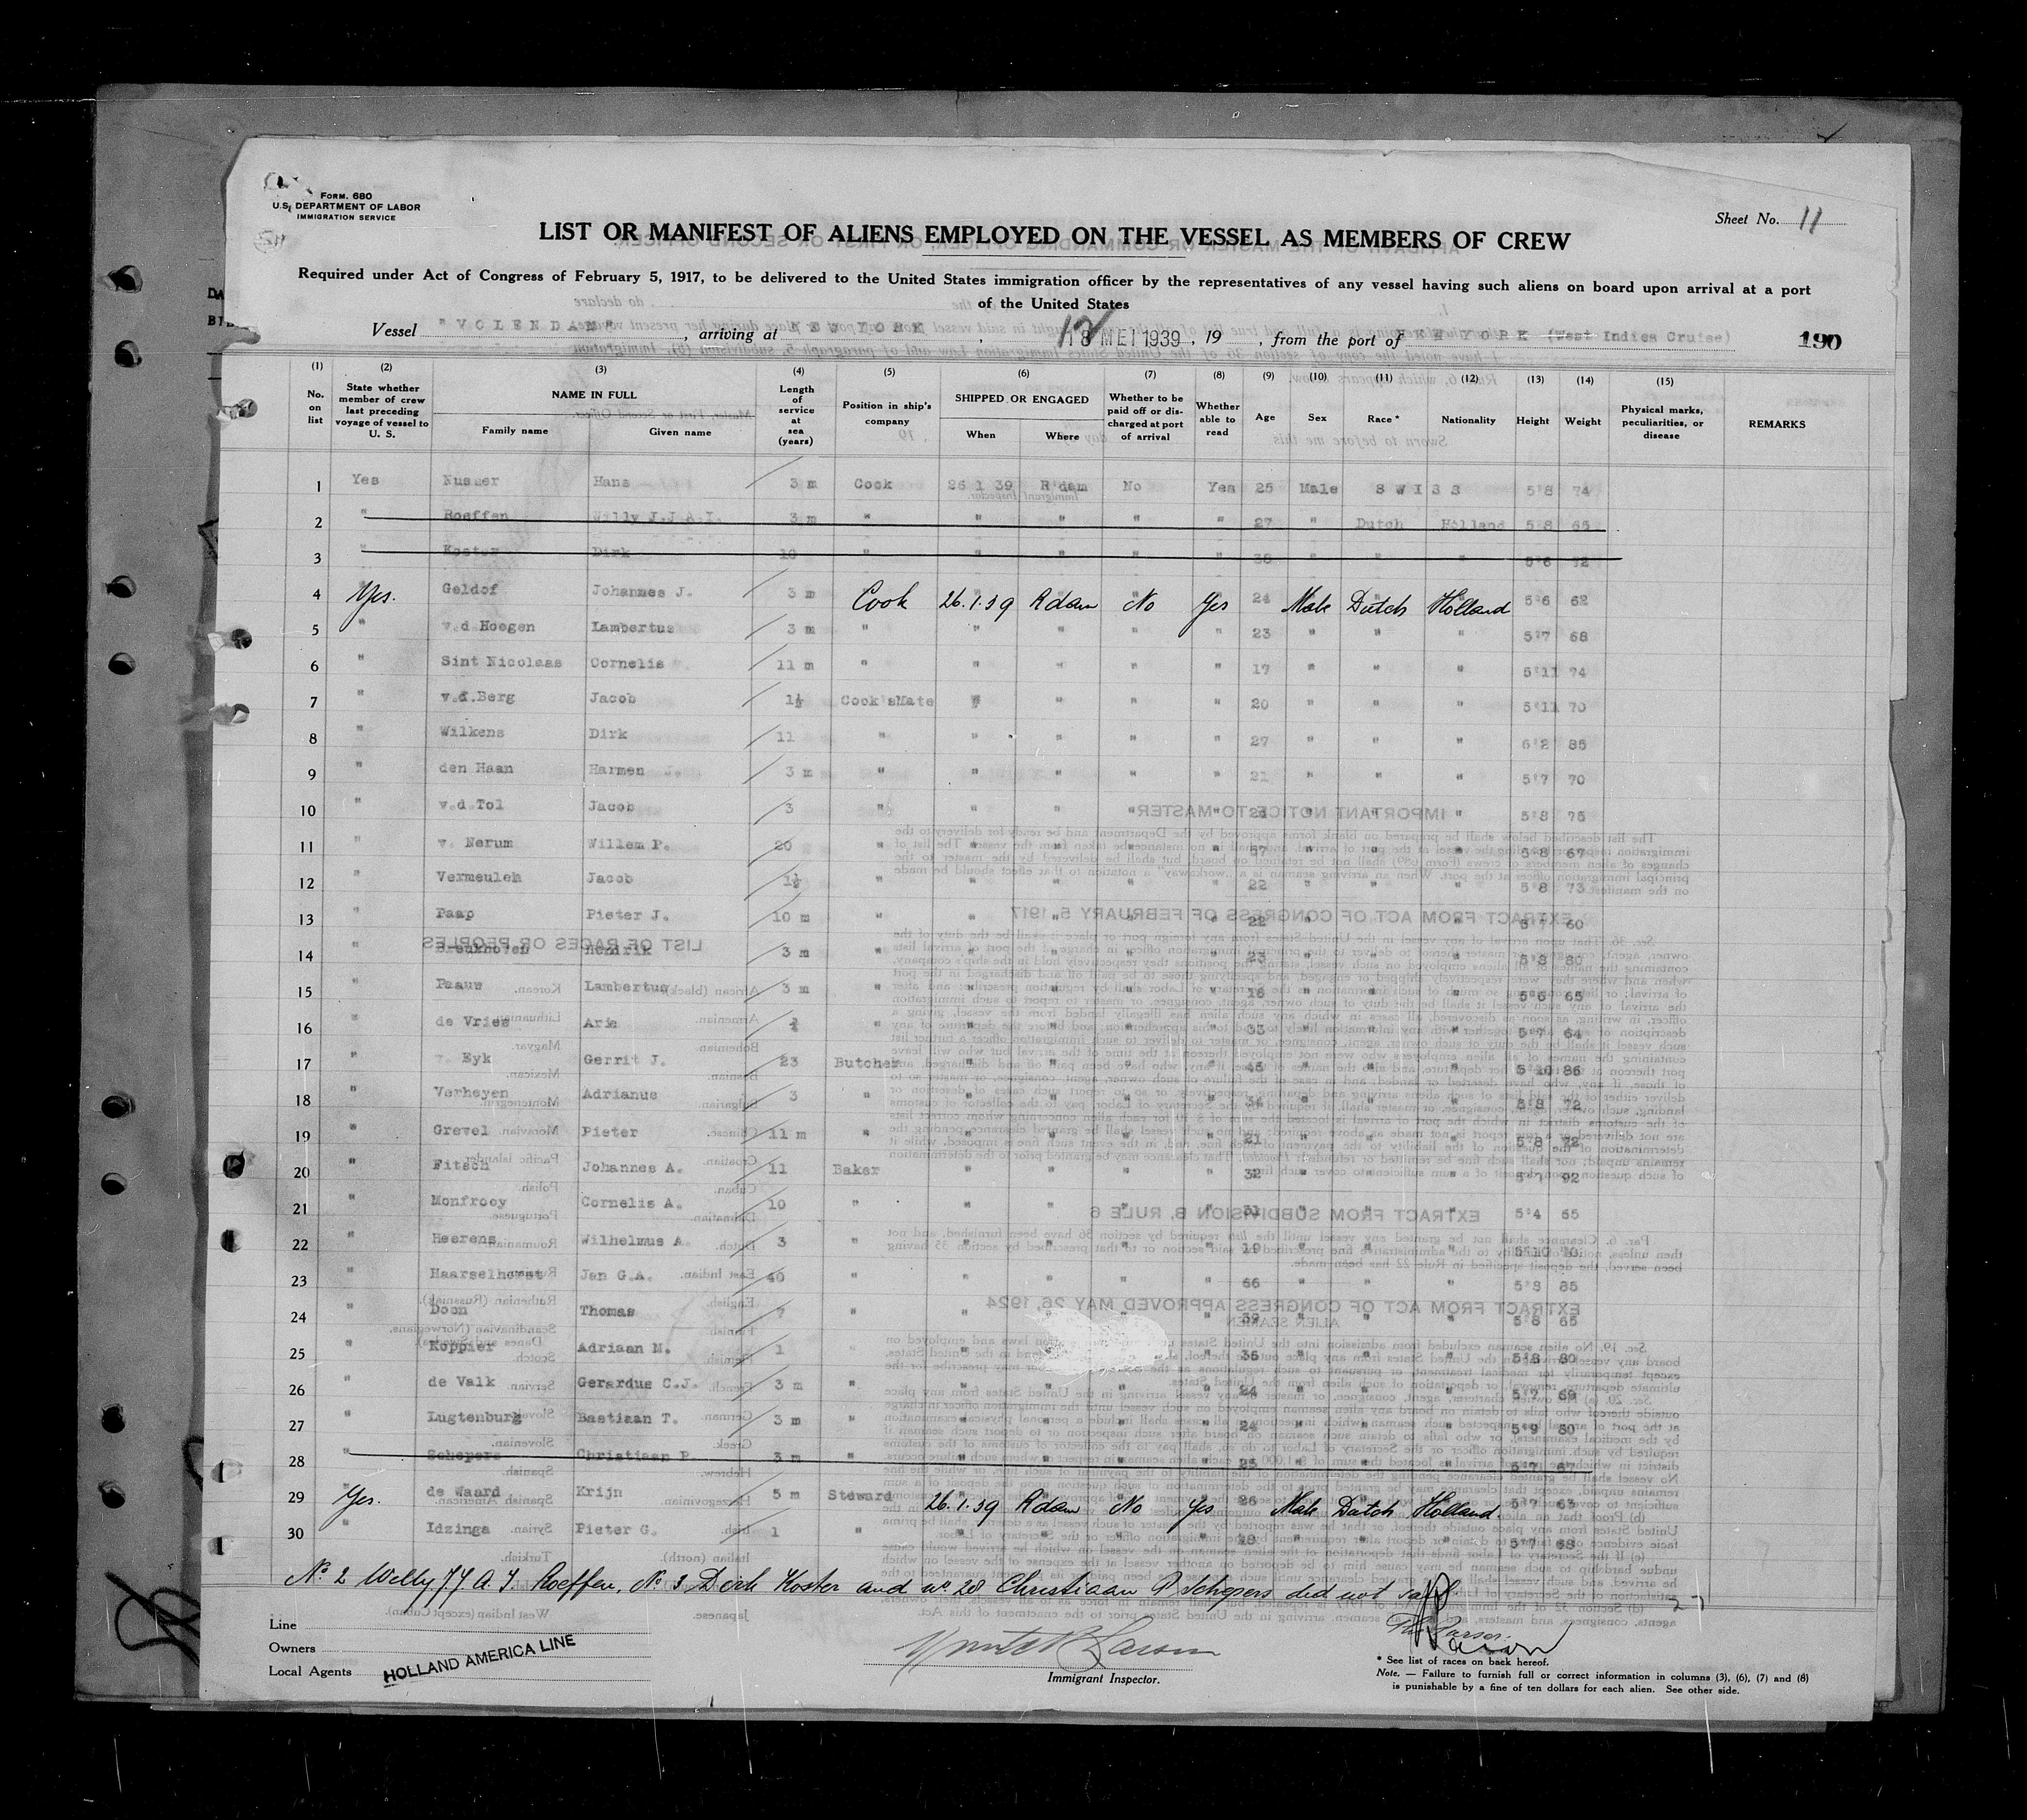 FORM. 680
U.S. DEPARTMENT OF LABOR
IMMIGRATION SERVICE
Sheet No. 11
LIST OR MANIFEST OF ALIENS EMPLOYED ON THE VESSEL AS MEMBERS OF CREW
Required under Act of Congress of February 5, 1917, to be delivered to the United States immigration officer by the representatives of any vessel having such aliens on board upon arrival at a port
of the United States
Vessel "VOLENDAM", arriving at NEW YORK, 18 MEI 1939, 19 , from the port of NEW YORK (West Indies Cruise) 190
(1) (2) (3) (4) (5) (6) (7) (8) (9) (10) (11) (12) (13) (14) (15)
No. on list State whether member of crew last preceding voyage of vessel to U. S. NAME IN FULL Family name Given name Length of service at sea (years) Position in ship's company SHIPPED OR ENGAGED When Where Whether to be paid off or discharged at port of arrival Whether able to read Age Sex Race* Nationality Height Weight Physical marks, peculiarities, or disease REMARKS
1 Yes Nusser Hans 3 m Cook 26 1 39 R'dam No Yes 25 Male SWISS 5'8 74
2 " Roeffen Willy J.J.A.I. 3 m " " " " " 27 " Dutch Holland 5'8 65
3 " Koster Dirk 10 " " " " " 38 " " " 5'6 72
4 Yes. Geldof Johannes J. 3 m Cook 26.1.39 R'dam No Yes 24 Male Dutch Holland 5'6 62
5 " v.d Hoegen Lambertus 3 m " " " " " 23 " " " 5'7 68
6 " Sint Nicolaas Cornelis 11 m " " " " " 17 " " " 5'11 74
7 " v.d.Berg Jacob 1½ Cook'sMate " " " " 20 " " " 5'11 70
8 " Wilkens Dirk 11 " " " " " 27 " " " 6'2 85
9 " den Haan Harmen J. 3 m " " " " " 21 " " " 5'7 70
10 " v.d.Tol Jacob 3 " " " " " " " " 5'8 75
11 " v. Nerum Willem P. 20 " " " " " 57 " " " 5'8 67
12 " Vermeulen Jacob 1½ " " " " " 22 " " " 5'8 73
13 " Paap Pieter J. 10 m " " " " " 22 " " " 5'7 60
14 " Breukhoven Hendrik 3 m " " " " " 23 " " " 5'8 80
15 " Paauw Lambertus 3 m " " " " " 16 " " " 5'6 65
16 " de Vries Arie " " " " " 33 " " " 5'7 64
17 " v. Eyk Gerrit J. 23 Butcher " " " " 45 " " " 5'10 86
18 " Verheyen Adrianus 3 " " " " " 34 " " " 5'8 72
19 " Grevel Pieter 11 m " " " " " 21 " " " 5'8 72
20 " Fitsch Johannes A. 11 Baker " " " " 32 " " " 5'7 92
21 " Monfrooy Cornelis A. 10 " " " " " 31 " " " 5'4 55
22 " Heerens Wilhelmus A. 3 " " " " " 19 " " " 5'10 70
23 " Haarselhorst Jan G.A. 40 " " " " " 66 " " " 5'8 85
24 " Doon Thomas 7 " " " " " 39 " " " 5'8 65
25 " Koppier Adriaan M. 1 " " " 35 " " " 5'8 80
26 " de Valk Gerardus C.J. 3 m " " " " 24 " " " 5'7 69
27 " Lugtenburg Bastiaan T. 3 m " " " " " 24 " " " 5'9 80
28 " Schepers Christiaan P. 3 m " " " " " 25 " " " 5'7 67
29 Yes. de Waard Krijn 5 m Steward 26.1.39 R'dam No Yes 26 Male Dutch Holland. 5'7 63
30 " Idzinga Pieter G. 1 " " " " " 28 " " " 5'7 68
No. 2 Willy J J A. I. Roeffen, No 3 Dirk Koster and no. 28 Christiaan P Schepers did not sail.
The Purser.
Line
Owners
Local Agents HOLLAND AMERICA LINE
Immigrant Inspector.
* See list of races on back hereof.
Note. — Failure to furnish full or correct information in columns (3), (6), (7) and (8)
is punishable by a fine of ten dollars for each alien. See other side.